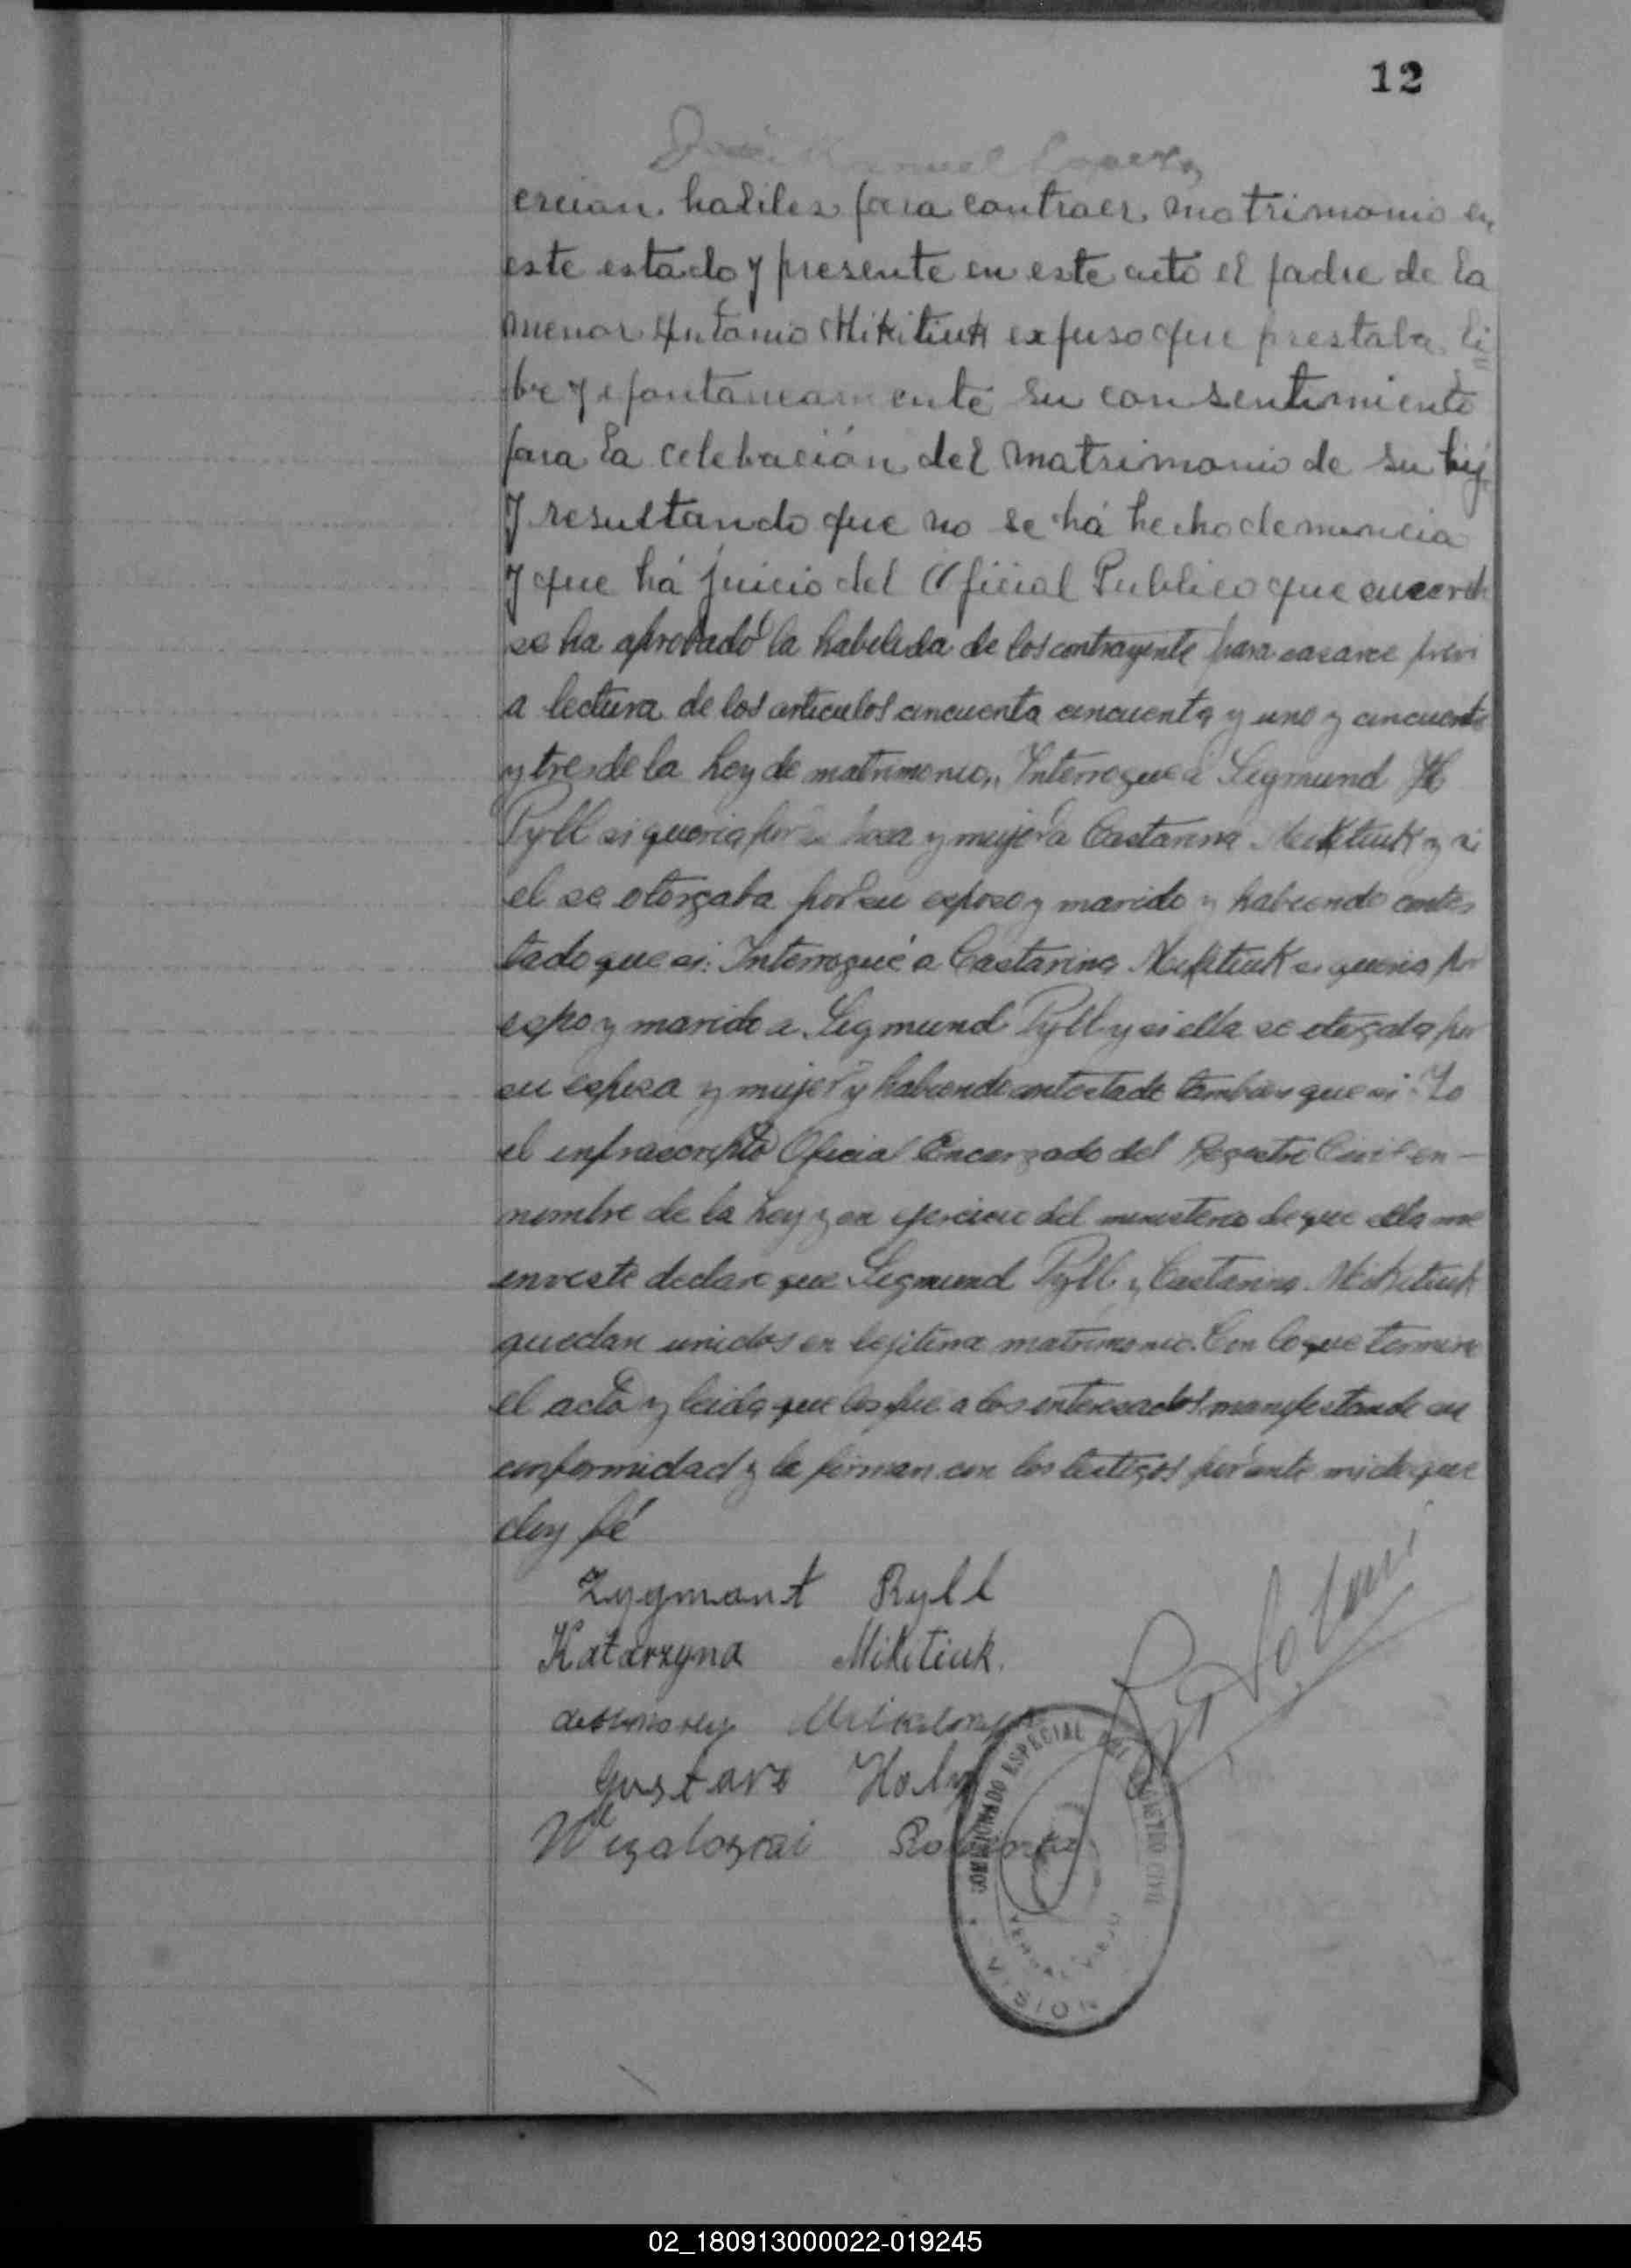 12
José Manuel Lopez
creian habiles para contraer matrimonio en
este estado y presente en este acto el padre de la
menor Antonio Mikitiuk expuso que prestaba li
bre y espontaneamente su consentimiento
para la celebración del matrimonio de su hij
Y resultando que no se há hecho denuncia
y que há juicio del Oficial Publico que
se ha aprobado la habilida de los contrayente para casarce previ
a lectura de los articulos cincuenta cincuenta y uno y cincuenta
y tres de la Ley de matrimonio,, Interrogue a Sigmund
Pyll si queria por y mujer a Castarina Mikitiuk y si
el se otorgaba por su esposo y marido y habiendo contes
tado que si: Interrogué a Castarina Mikitiuk si queria por
espo y marido a Sigmund Pyll y si ella se otorgaba por
su esposa y mujer y habiendo contestado tambien que si: Yo
el infrascripto Oficial Encargado del Registro Civil en —
nombre de la Ley y en ejercicio del ministerio de que ella me
enveste declaro que Sigmund Pyll y Castarina Mikitiuk
quedan unidos en legitimo matrimonio. Con lo que termino
el acto y leida que les fue a los interesados manifestando su
conformidad y la firman con los testigos por ante mi de que
doy fé
Zygmont Ryll
Katarzyna Mikitiuk.
Gustavo
COMISIONADO ESPECIAL DEL REGISTRO CIVIL
02_180913000022-019245